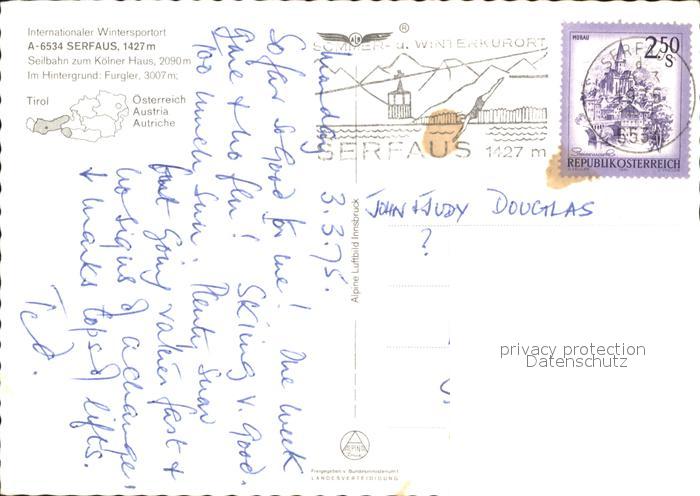 Internationaler Wintersportort
A-6534 SERFAUS, 1427 m
Seilbahn zum Kölner Haus, 2090 m
Im Hintergrund: Furgler, 3007m;
Tirol
Österreich
Austria
Autriche
SOMMER- u. WINTERKURORT
SERFAUS 1427 m
MURAU
2.50
S
REPUBLIK ÖSTERREICH
Monday 3.3.75.
So far so good for me! One week
gone & no flu! Skiing v. good.
Too much sun. Plenty snow
but going rather fast &
no signs of a change.
& marks tops of lifts.
Ted.
JOHN & JUDY DOUGLAS
?
Alpine Luftbild Innsbruck
privacy protection
Datenschutz
ALPINE
Freigegeben v. Bundesministerium f.
LANDESVERTEIDIGUNG